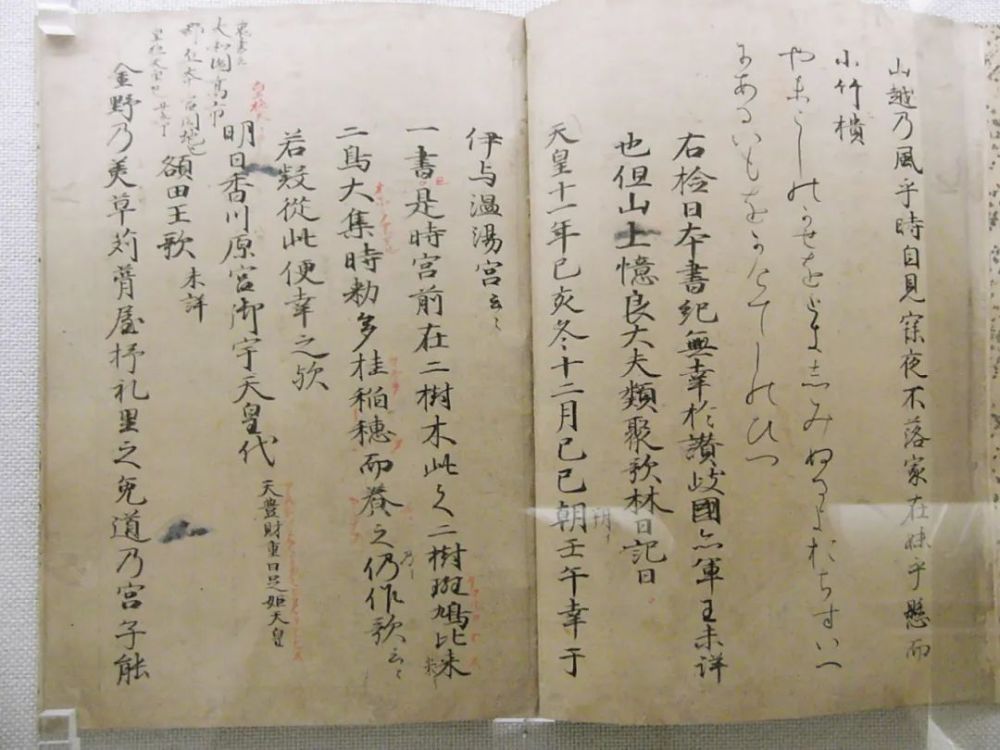 山越乃風乎時自見寐夜不落家在妹乎懸而
小竹樻
やまこしのかせをときしみぬるよおちすいへ
にあるいもをかけてしのひつ
右検日本書紀無幸於讃岐國亦軍王未詳
也但山上憶良大夫類聚歌林曰記曰
天皇十一年己亥冬十二月己巳朝壬午幸于
朔
伊与温湯宮云々
一書是時宮前在二樹木此之二樹斑鳩比来
二鳥大集時勅多桂稲穂而養之仍作歌云々
若疑從此便幸之歟
明日香川原宮御宇天皇代 天豊財重日足姫天皇
大和國高市
額田王歌 未詳
金野乃美草苅葺屋杼礼里之兎道乃宮子能